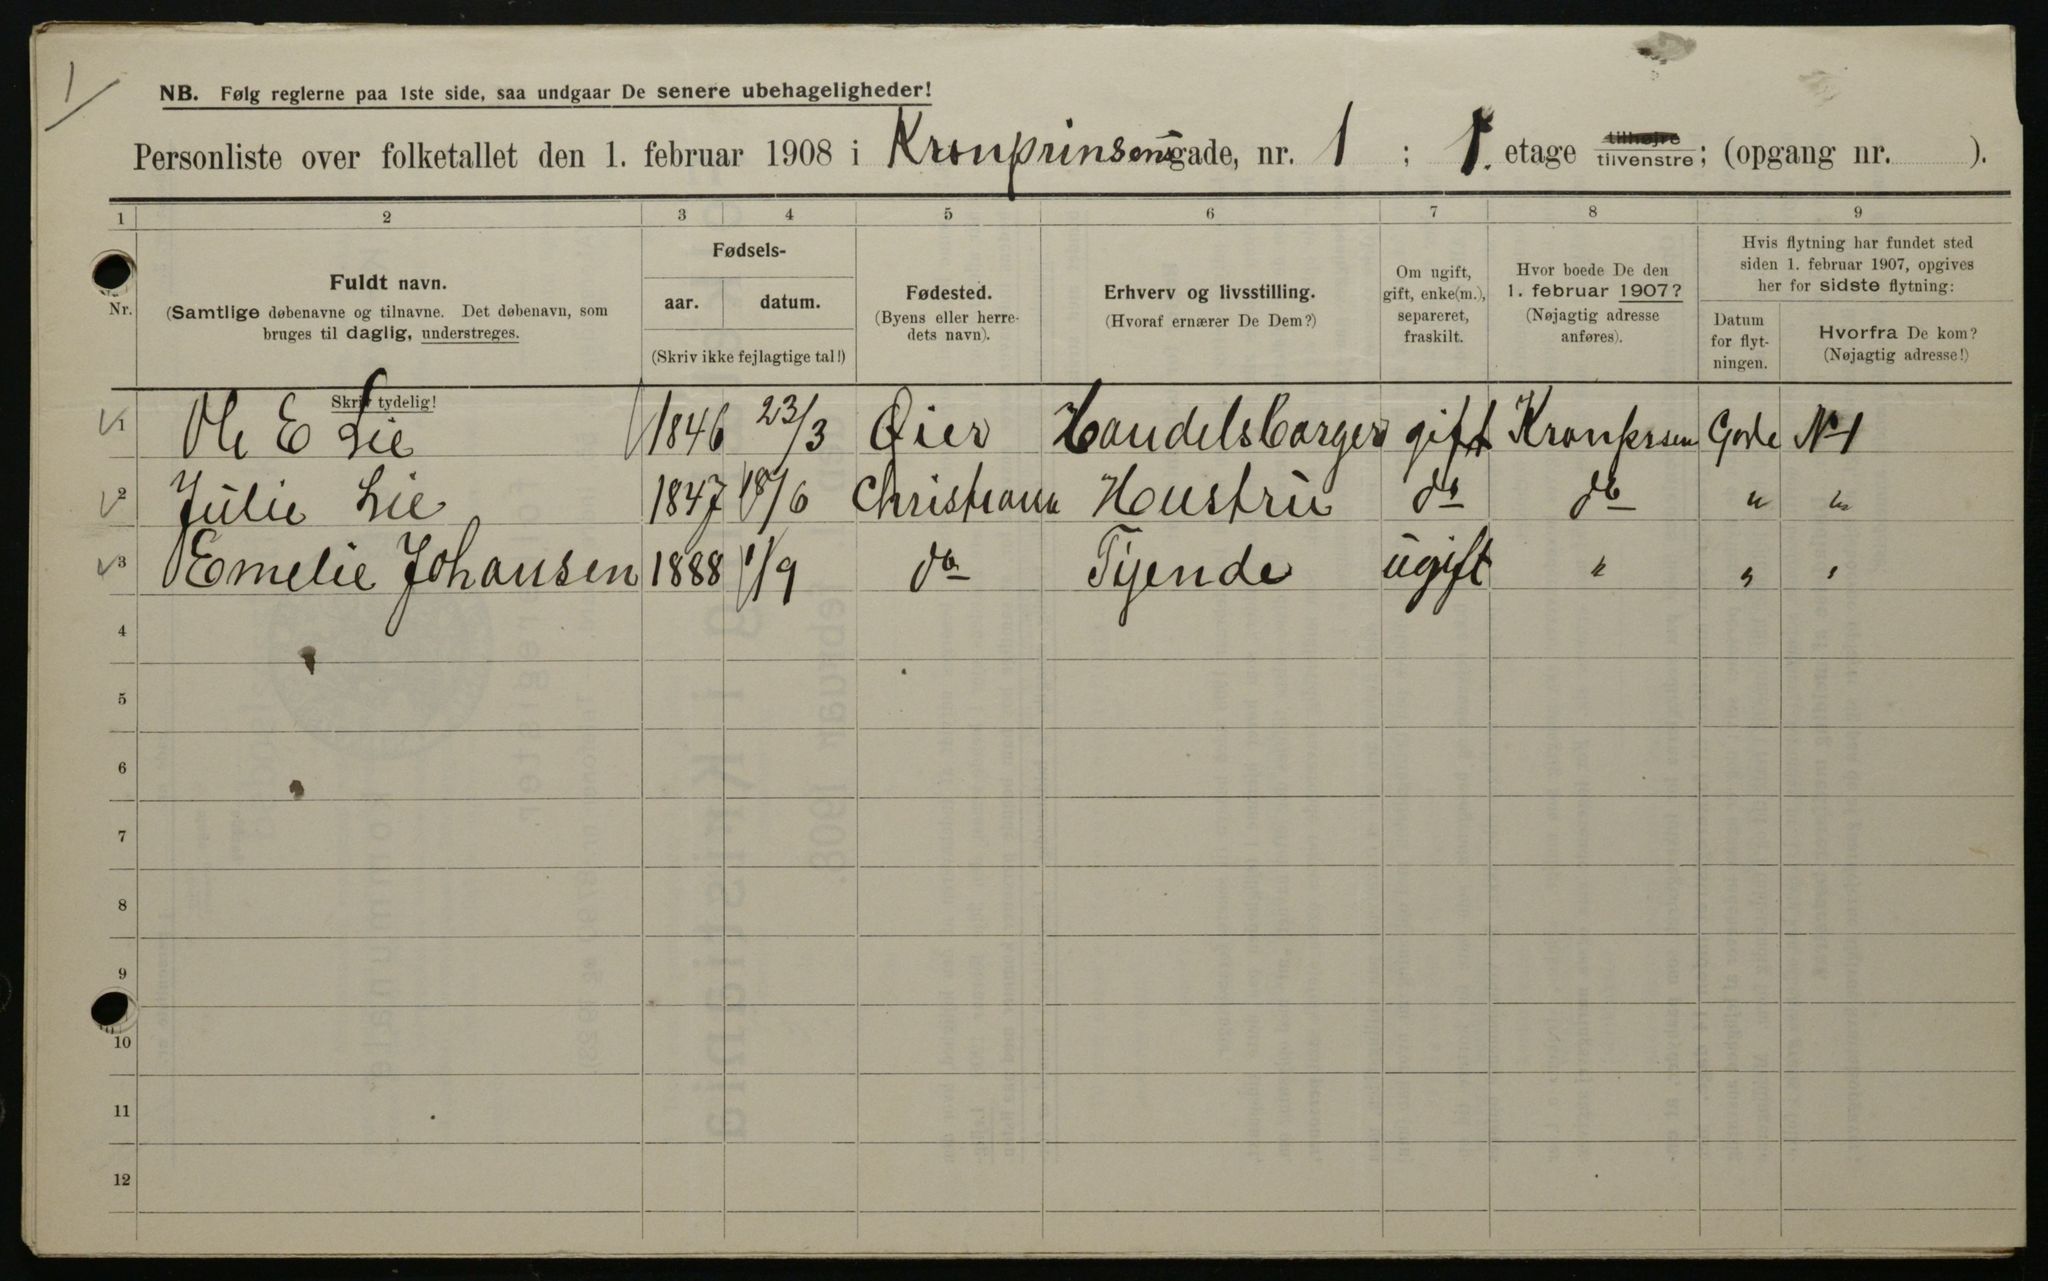 1
NB. Følg reglerne paa 1ste side, saa undgaar De senere ubehageligheder!
Personliste over folketallet den 1. februar 1908 i Kronprinsensgade, nr. 1 ; 1. etage tilhøjre tilvenstre; (opgang nr. ).
1 2 3 4 5 6 7 8 9
Nr.
Fuldt navn.
(Samtlige døbenavne og tilnavne. Det døbenavn, som
bruges til daglig, understreges.
Skriv tydelig!
Fødsels-
aar. datum.
(Skriv ikke fejlagtige tal!)
Fødested.
(Byens eller herre-
dets navn).
Erhverv og livsstilling.
(Hvoraf ernærer De Dem?)
Om ugift,
gift, enke(m.),
separeret,
fraskilt.
Hvor boede De den
1. februar 1907?
(Nøjagtig adresse
anføres).
Hvis flytning har fundet sted
siden 1. februar 1907, opgives
her for sidste flytning:
Datum
for flyt-
ningen.
Hvorfra De kom?
(Nøjagtig adresse!)
1 Ole E Lie 1846 23/3 Øier Handelsborger gift Kronprsen Gade N 1
2 Julie Lie 1847 18/6 Christiania Hustru do do " "
3 Emelie Johansen 1888 1/9 do Tyende ugift " " "
4
5
6
7
8
9
10
11
12